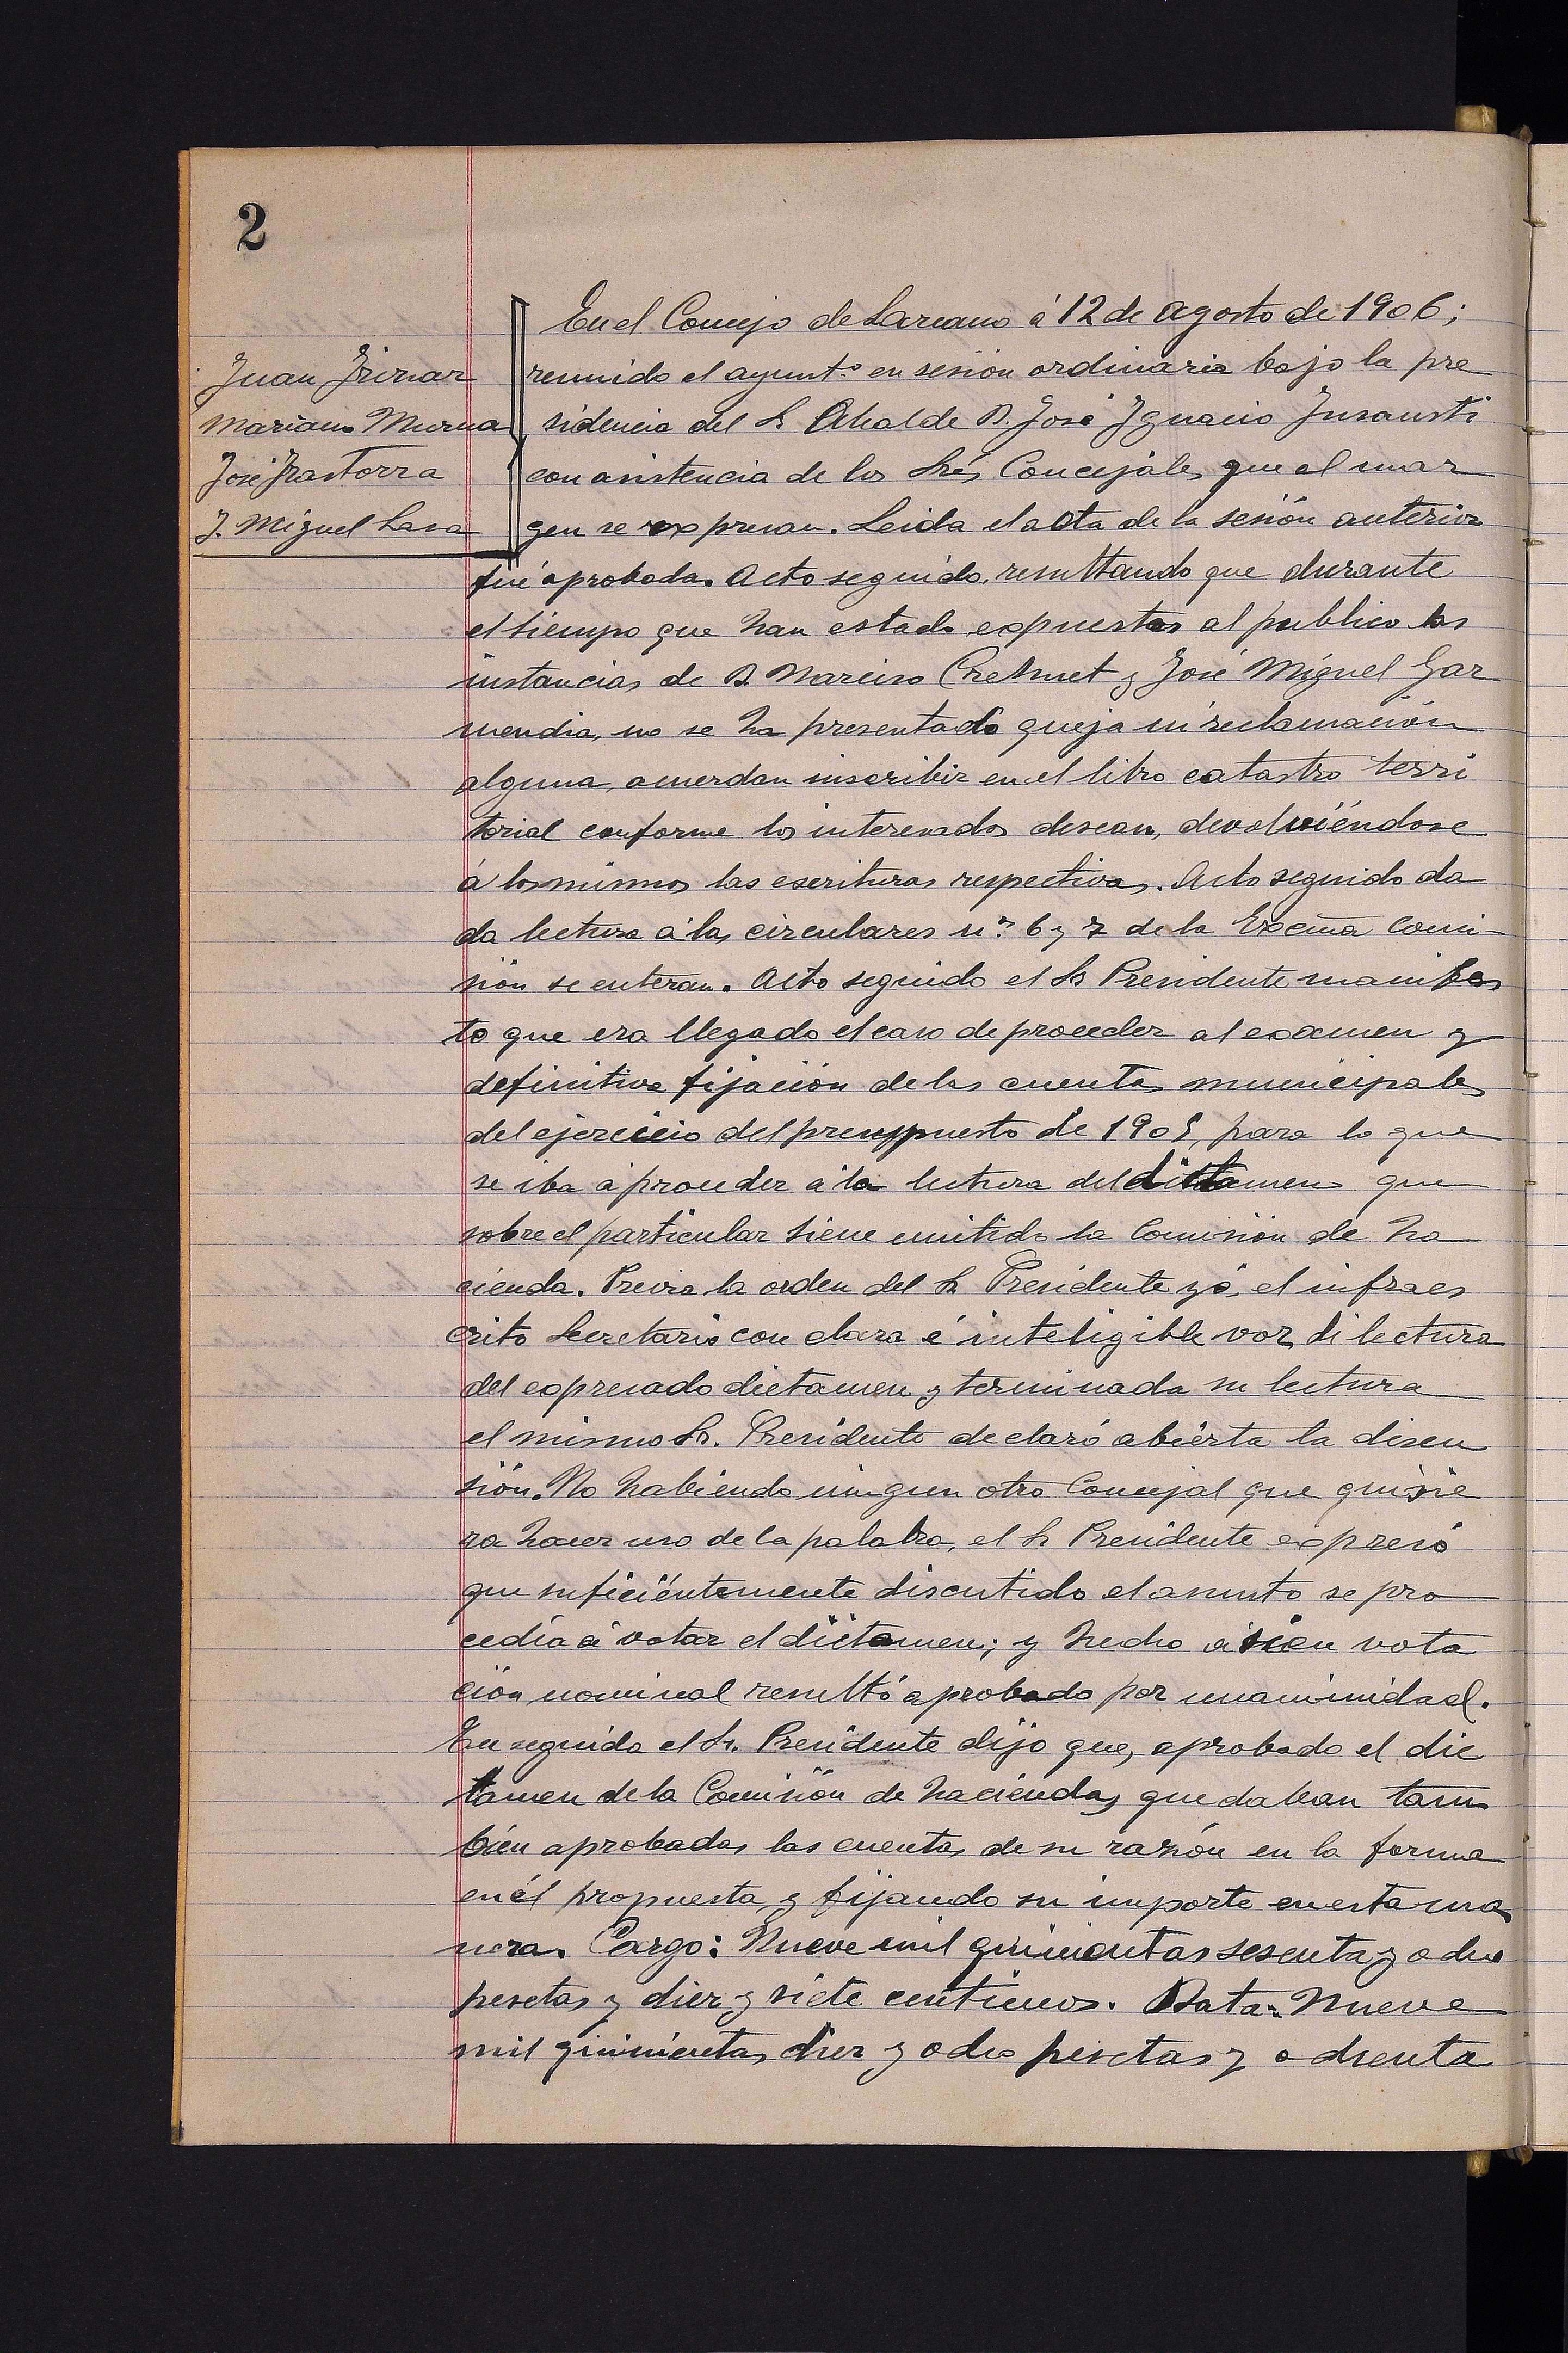 2
Juan Irizar
Mariano Murua
José Irastorza
J. Miguel Lasa
En el Concejo de Lazcano á 12 de agosto de 1906;
reunido el ayunt.º en sesión ordinaria bajo la pre
sidencia del Sr Alcalde D. José Ignacio Insausti
con asistencia de los Srēs Concejales que al mar
gen se expresan. Leida el acta de la sesión anterior
fué aprobada. Acto seguido, resultando que durante
el tiempo que han estado expuestas al publico las
instancias de D. Narciso y José Miguel Gar
mendia, no se ha presentado queja ni reclamación
alguna, acuerdan inscribir en el libro catastro terri
torial conforme los interesados desean, devolviéndose
á los mismos las escrituras respectivas. Acto seguido da
da lectura á las circulares n.º 6 y 7 de la Excma Comi-
sión se enteran. Acto seguido el Sr Presidente manifes
to que era llegado el caso de proceder al examen y
definitiva fijación de las cuentas municipales
del ejercicio del presuppuesto de 1905, para lo que
se iba á proceder á la lectura del dictamen que
sobre el particular tiene emitido la Comisión de ha
cienda. Previa la orden del Sr Presidente yó, el infraes
crito Secretario con clara é inteligible voz di lectura
del expresado dictamen y terminada su lectura
el mismo Sr. Presidente declaró abierta la discu
sión. No habiendo ningun otro Concejal que quisie
ra hacer uso de la palabra, el Sr Presidente expresó
que suficientemente discutido el asunto se pro
cedía á votar el dictamen; y hecho asi en vota
ción nominal resultó aprobado por unanimidad.
En seguida el Sr. Presidente dijo que, aprobado el dic
tamen de la Comisión de hacienda, quedaban tam
bien aprobadas las cuentas de su razón en la forma
en él propuesta y fijando su importe en esta ma
nera. Cargo: Nueve mil quinientas sesenta y ocho
pesetas y diez y siete centimos. Data: Nueve
mil quinientas diez y ocho pesetas y ochenta